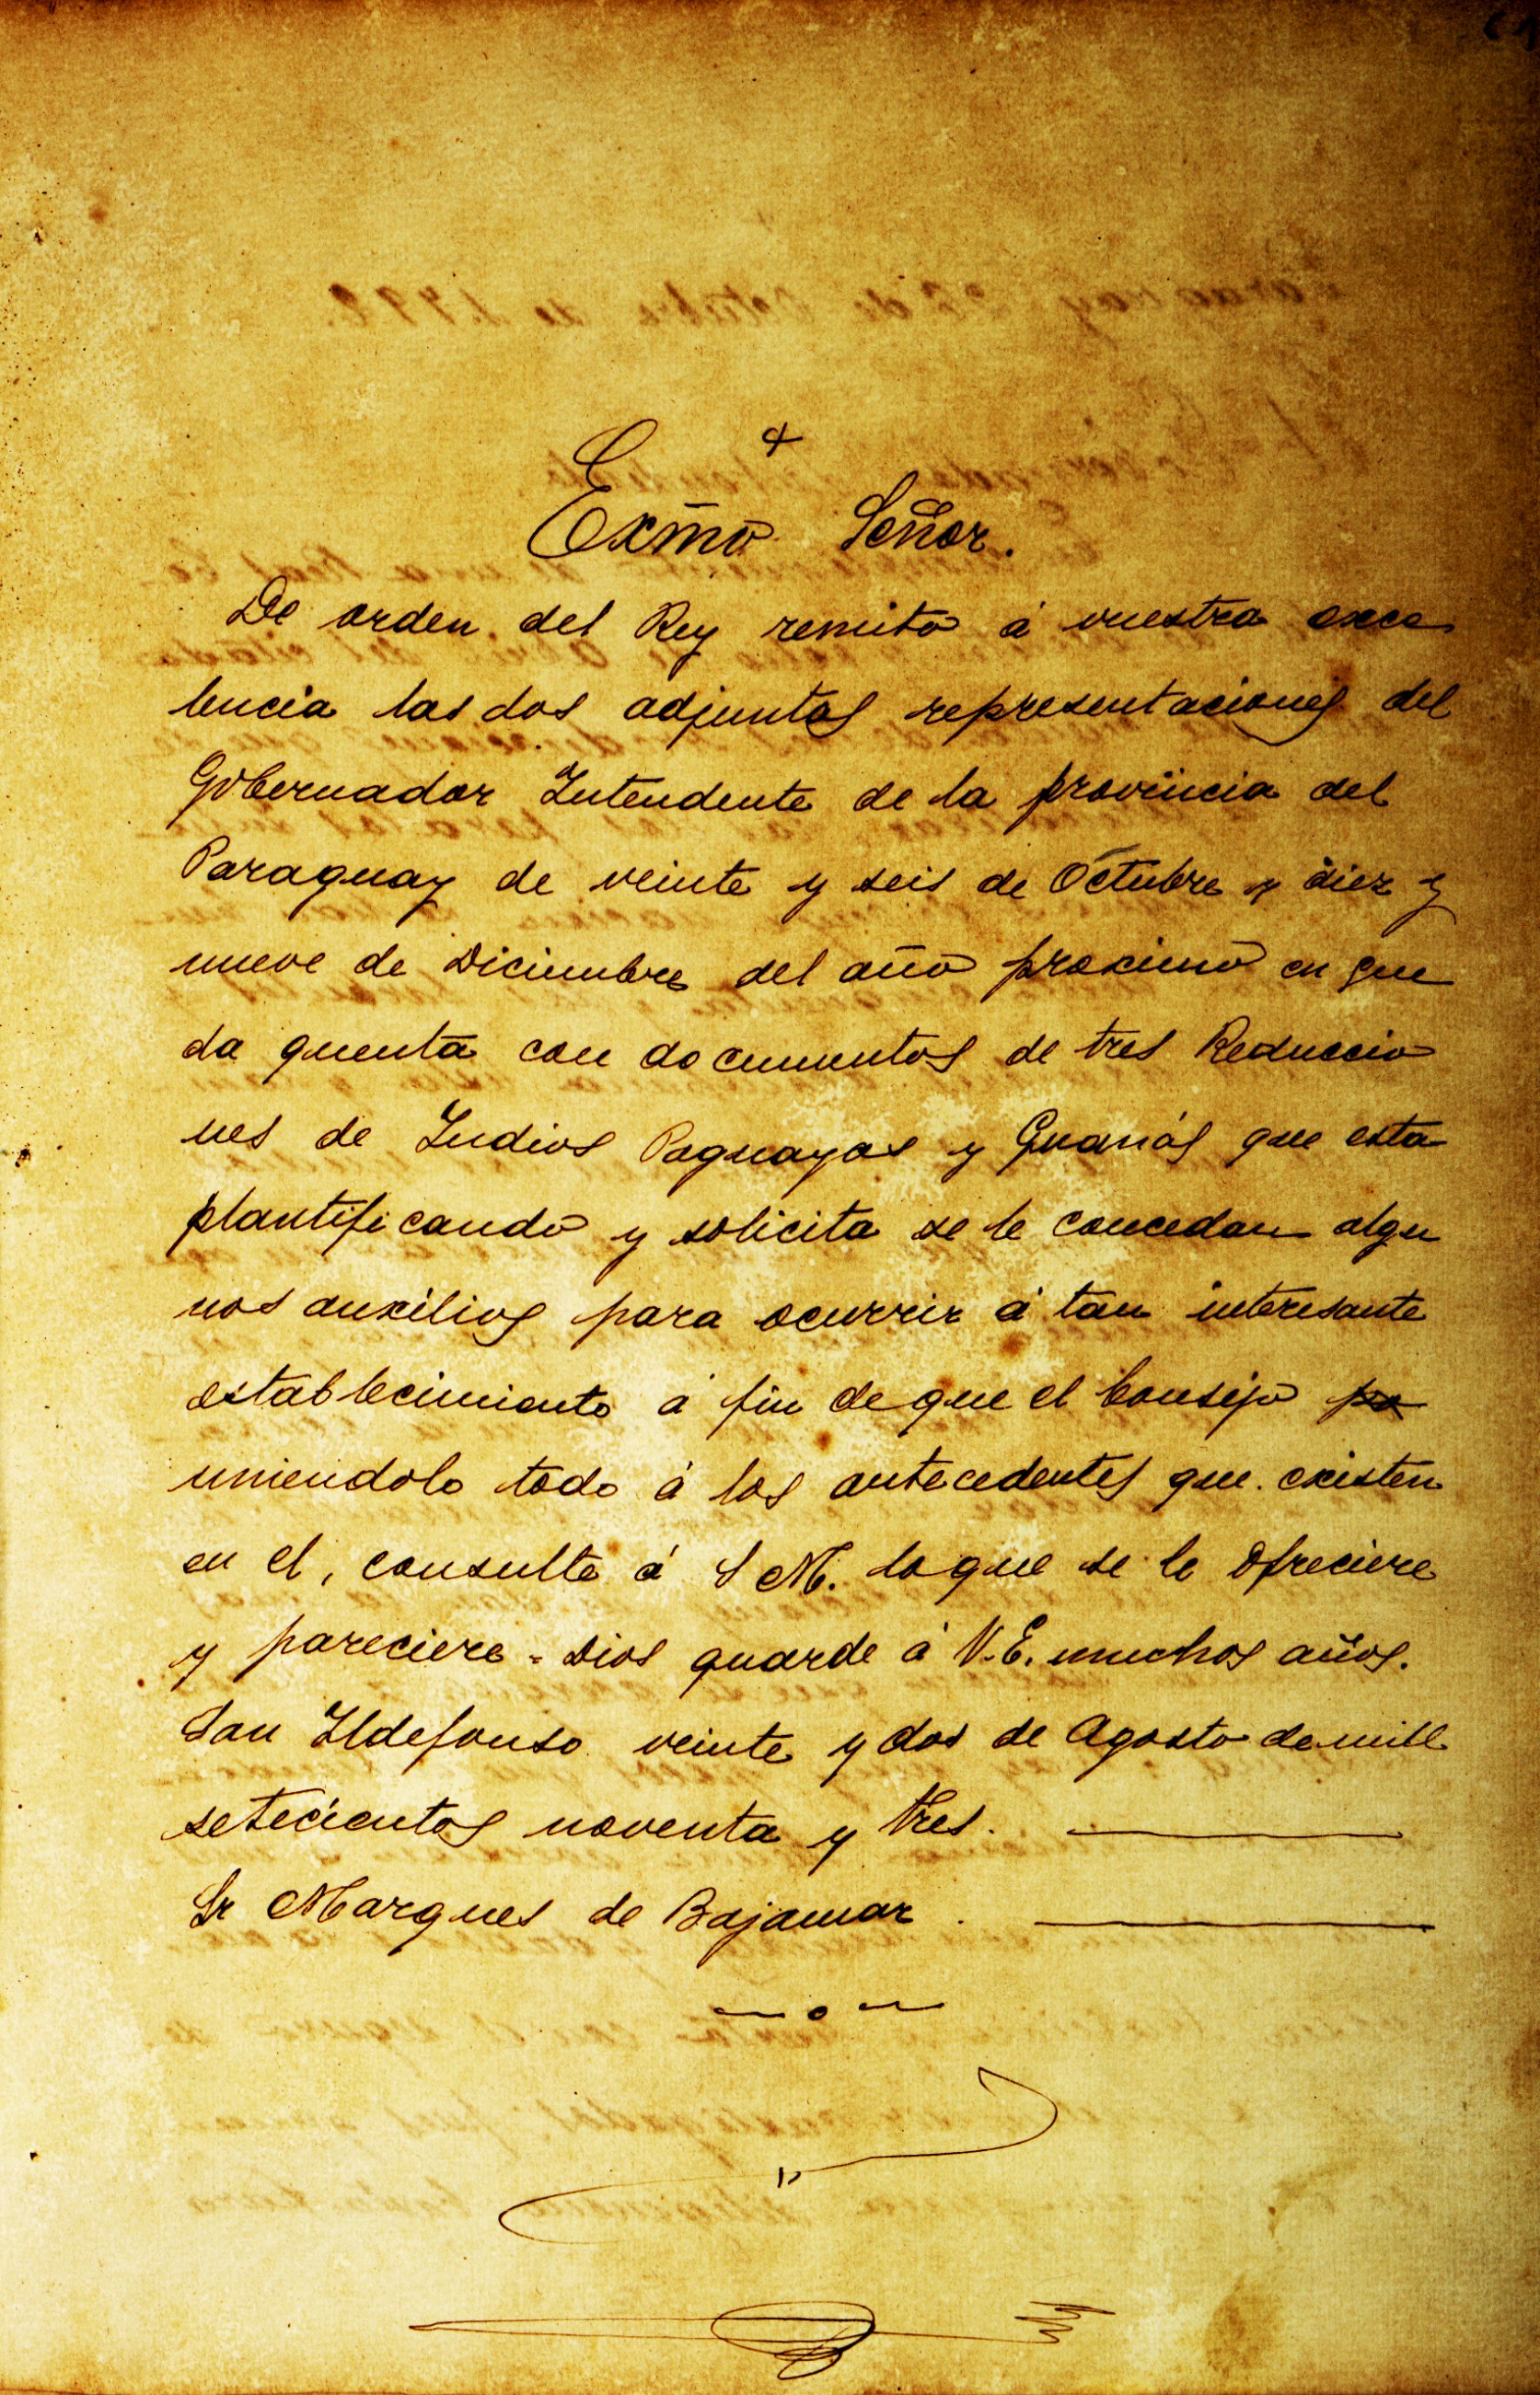 +
Exmo Señor.
De orden del Rey remito á vuestra exce
lencia las dos adjuntas representaciones del
Gobernador Intendente de la provincia del
Paraguay de veinte y seis de Octubre y diez y
nueve de Diciembre del año proximo en que
da quenta con documentos de tres Reduccio
nes de Indios Paguayas y Guanás que esta
plantificando y solicita se le concedan algu
nos auxilios para ocurrir á tan interesante
establecimiento á fin de que el Consejo
uniendolo todo á los antecedentes que existen
en el, consulte á S M. lo que se le ofreciere
y pareciere = Dios guarde á V.E. muchos años.
San Ildefonso veinte y dos de Agosto de mill
setecientos noventa y tres.
Sr Marques de Bajamar.